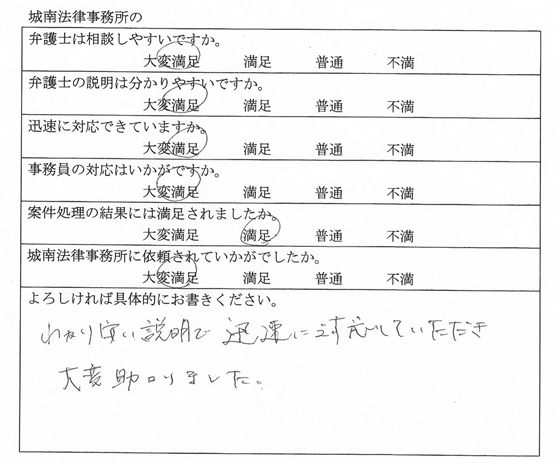 城南法律事務所の
弁護士は相談しやすいですか。
大変満足 満足 普通 不満
弁護士の説明は分かりやすいですか。
大変満足 満足 普通 不満
迅速に対応できていますか。
大変満足 満足 普通 不満
事務員の対応はいかがですか。
大変満足 満足 普通 不満
案件処理の結果には満足されましたか。
大変満足 満足 普通 不満
城南法律事務所に依頼されていかがでしたか。
大変満足 満足 普通 不満
よろしければ具体的にお書きください。
わかり安い説明で 迅速に対応していただき
大変助かりました。